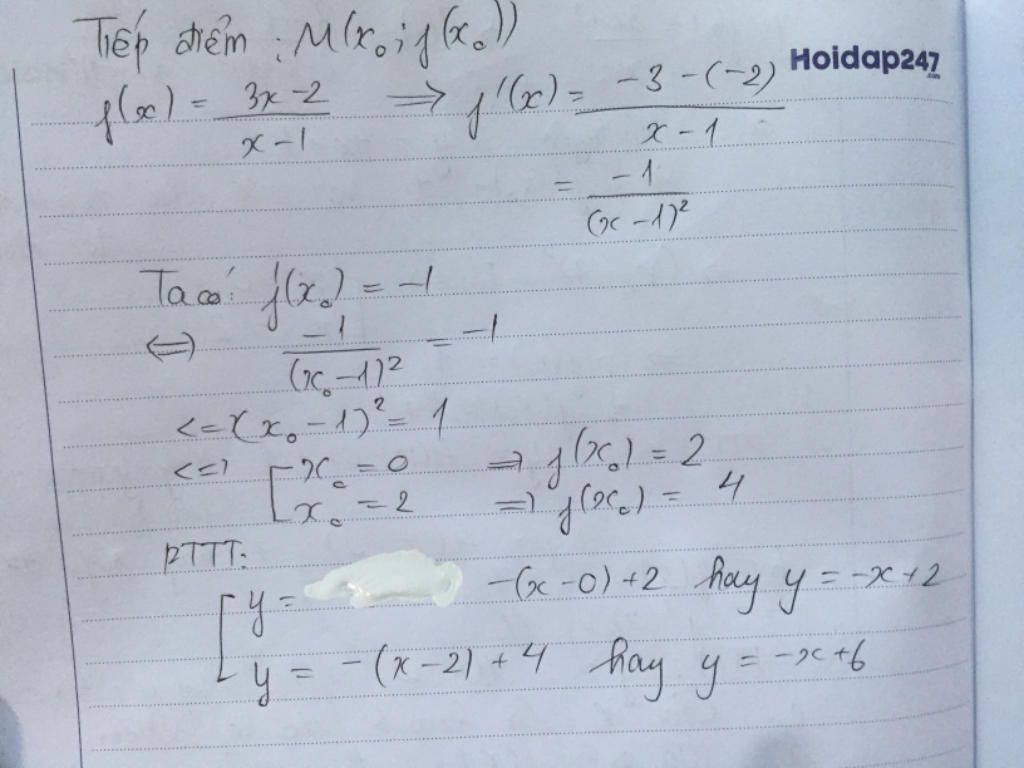 Tiếp điểm : M(x₀; f(x₀))
Hoidap247
.com
f(x) = (3x-2)/(x-1) ⟹ f'(x) = (-3-(-2))/(x-1)
= (-1)/(x-1)²
Ta có: f'(x₀) = -1
⟺ (-1)/(x₀-1)² = -1
<=> (x₀-1)² = 1
<=> [ x₀ = 0 => f(x₀) = 2
x₀ = 2 => f(x₀) = 4
PTTT:
[ y = -(x-0)+2 hay y = -x+2
y = -(x-2)+4 hay y = -x+6